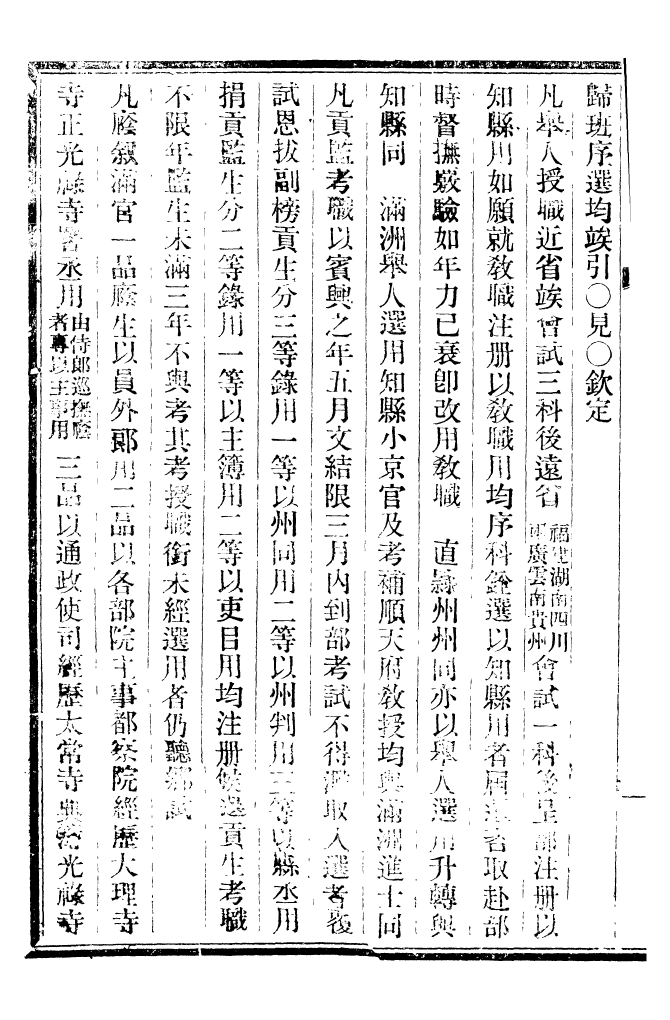 歸班序選均竢引○見○欽定
凡舉人授職近省竢會試三科後遠省福建湖南四川兩廣雲南貴州會試一科後呈部注册以
知縣用如願就敎職注册以敎職用均序科銓選以知縣用者屆選咨取赴部
時督撫嚴驗如年力已衰卽改用敎職　直隸州州同亦以舉人選用升轉與
知縣同　滿洲舉人選用知縣小京官及考補順天府敎授均與滿洲進士同
凡貢監考職以賓興之年五月文結限三月內到部考試不得濫取入選者覆
試恩拔副榜貢生分三等錄用一等以州同用二等以州判用三等以縣丞用
捐貢監生分二等錄用一等以主簿用二等以吏目用均注册候選貢生考職
不限年監生未滿三年不與考其考授職銜未經選用者仍聽鄉試
凡廕敘滿官一品廕生以員外郞用二品以各部院主事都察院經歷大理寺
寺正光祿寺署丞用由侍郞巡撫廕者專以主事用　三品以通政使司經歷太常寺典簿光祿寺